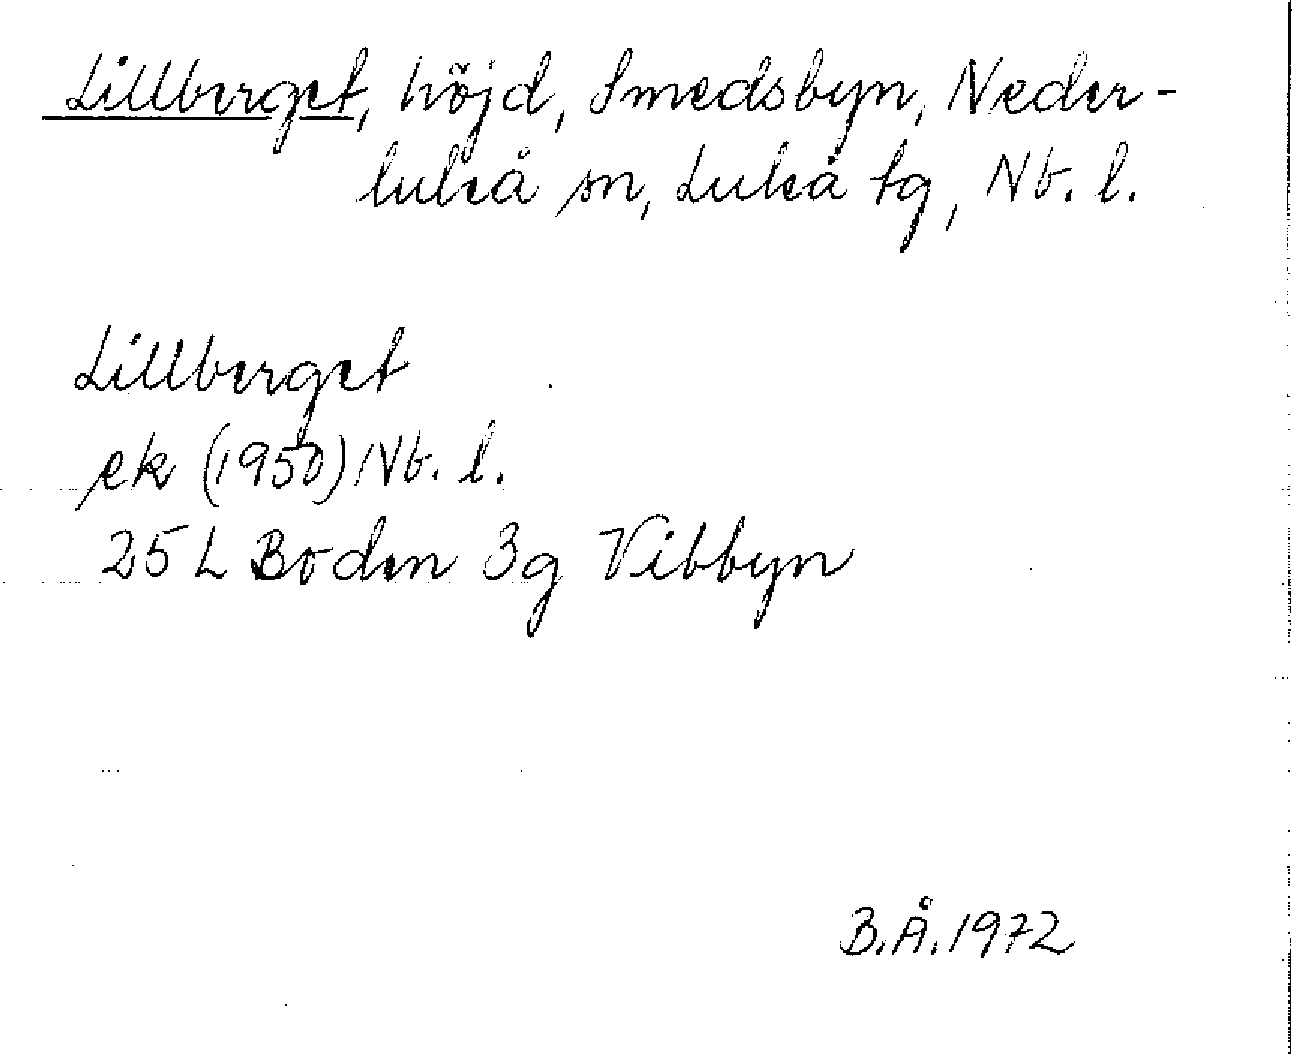 Lillberget, höjd, Smedsbyn, Neder-
luleå sn, Luleå tg, Nb. l.
Lillberget
ek (1950) Nb. l.
25 L Boden 3g Vibbyn
B.Å. 1972